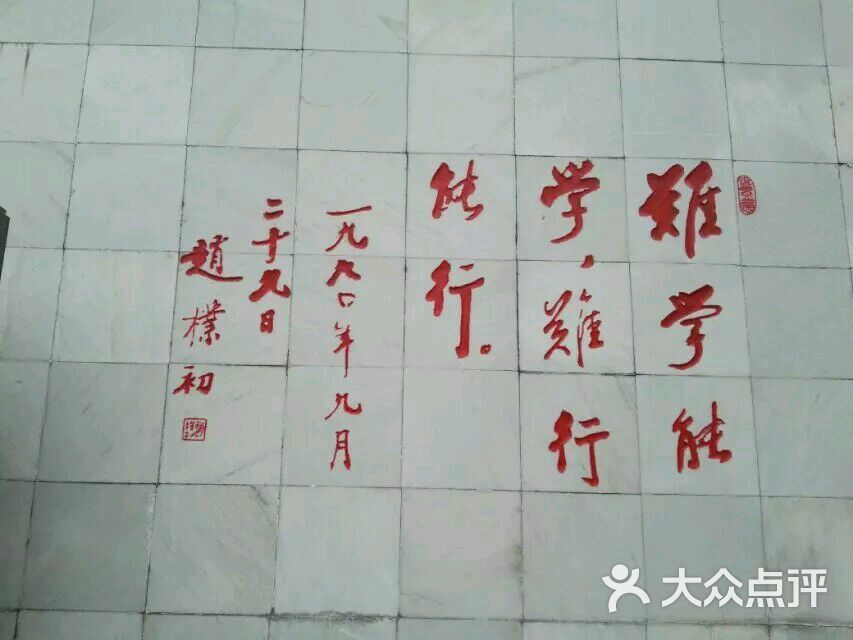 難学能
学，難行
能行。
一九九〇年九月
二十九日
趙樸初
大众点评